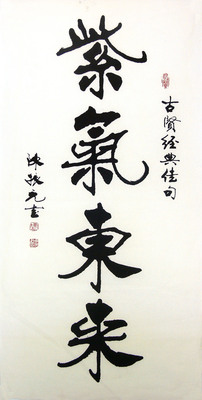 紫氣東来
古贤经典佳句